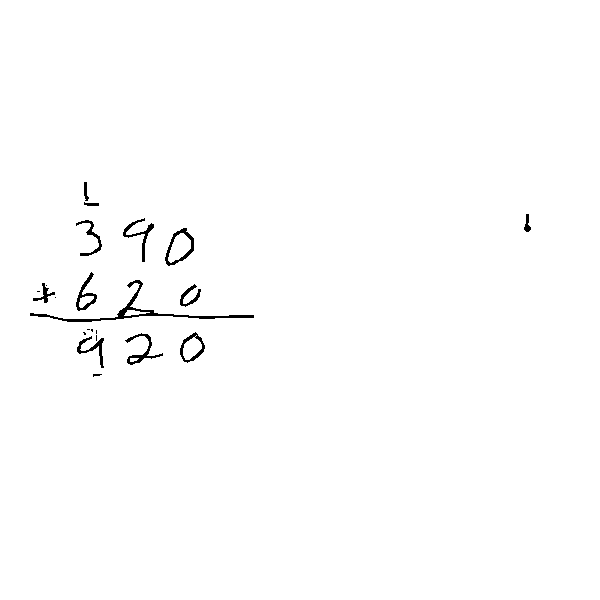 1
390
+ 620
920